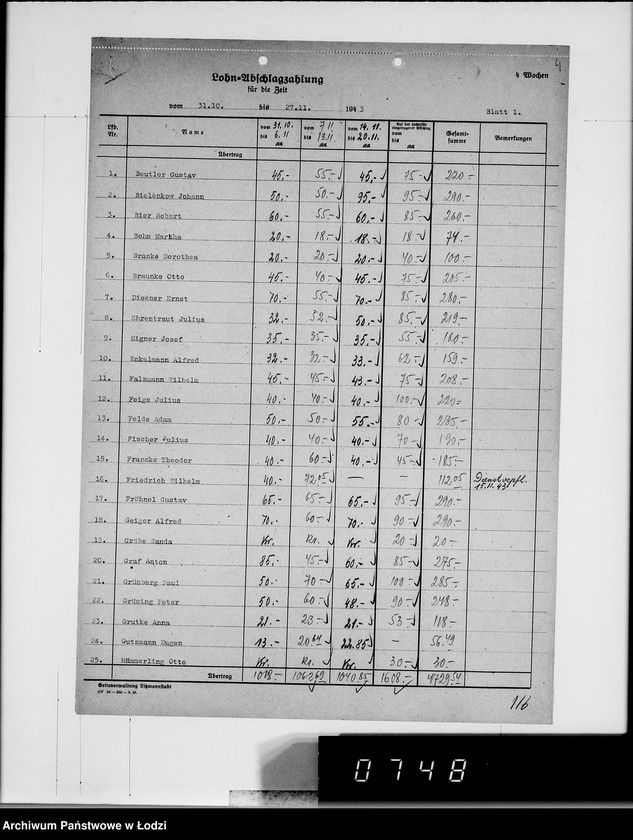 4
Lohn-Abschlagzahlung
für die Zeit
4 Wochen
vom 31.10. bis 27.11. 1943
Blatt 1.
Lfd. Nr. Name vom 31.10. bis 6.11 vom 7.11 bis 13.11 vom 14.11. bis 20.11. vom bis Gesamtsumme Bemerkungen
Übertrag
1. Beutler Gustav 45.- 55.- 45.- 75.- 220.-
2. Bielenkow Johann 50.- 50.- 95.- 95.- 290.-
3. Bier Robert 60.- 55.- 60.- 85.- 260.-
4. Bohn Martha 20.- 18.- 18.- 18.- 74.-
5. Branke Dorothea 20.- 20.- 20.- 40.- 100.-
6. Braunke Otto 45.- 40.- 45.- 75.- 205.-
7. Diesner Ernst 70.- 55.- 70.- 85.- 280.-
8. Ehrentraut Julius 32.- 52.- 50.- 85.- 219.-
9. Eigner Josef 35.- 35.- 35.- 55.- 160.-
10. Enkelmann Alfred 32.- 32.- 33.- 62.- 159.-
11. Falzmann Wilhelm 45.- 45.- 43.- 75.- 208.-
12. Feige Julius 40.- 40.- 40.- 100.- 220.-
13. Felde Adam 50.- 50.- 55.- 80.- 235.-
14. Fischer Julius 40.- 40.- 40.- 70.- 190.-
15. Franzke Theodor 40.- 60.- 40.- 45.- 185.-
16. Friedrich Wilhelm 40.- 72,05 - - 112,05 Dienstverpfl. 15.11.43
17. Frühnel Gustav 65.- 65.- 65.- 95.- 290.-
18. Geiger Alfred 70.- 60.- 70.- 90.- 290.-
19. Gräbe Wanda Kr. Kr. Kr. 20.- 20.-
20. Graf Anton 85.- 45.- 60.- 85.- 275.-
21. Grünberg Paul 50.- 70.- 65.- 100.- 285.-
22. Grüning Peter 50.- 60.- 48.- 90.- 248.-
23. Grutke Anna 21.- 23.- 21.- 53.- 118.-
24. Gutzmann Eugen 13.- 20.64 22.85 - 56.49
25. Hämmerling Otto Kr. Kr. Kr. 30.- 30.-
Übertrag 1018.- 1062,69 1040.85 1608.- 4729.54
Gettoverwaltung Litzmannstadt
116
0748
Archiwum Państwowe w Łodzi